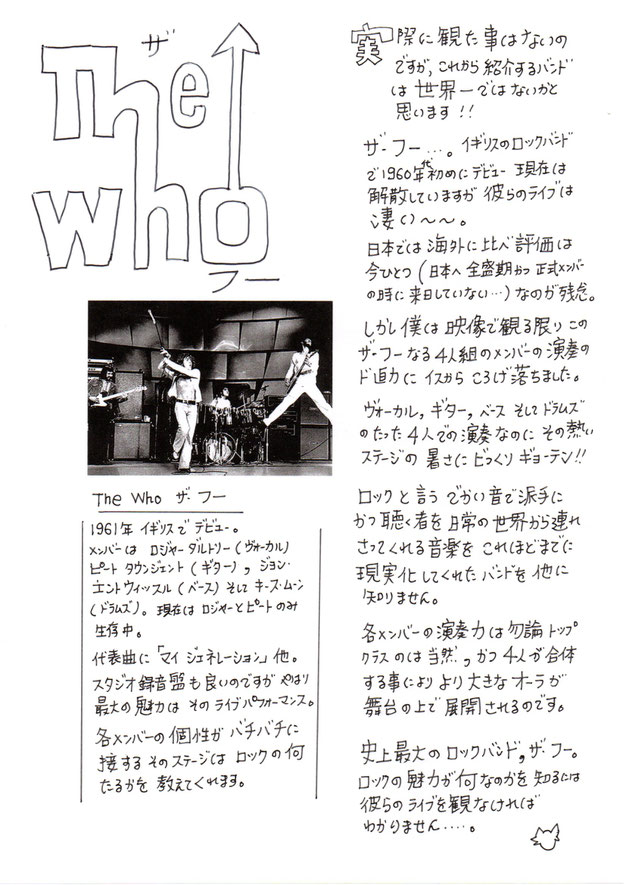 ザ
The
Who
フー
The Who ザ・フー
1961年 イギリスでデビュー。
メンバーは ロジャーダルトリー(ヴォーカル)
ピート タウンジェント(ギター), ジョン・
エントウィッスル(ベース)そして キース・ムーン
(ドラムズ)。現在は ロジャーとピートのみ
生存中。
代表曲に「マイ ジェネレーション」他。
スタジオ録音盤も良いのですが やはり
最大の魅力は そのライブパフォーマンス。
各メンバーの 個性が バチバチに
接する そのステージは ロックの何
たるかを 教えてくれます。
実際に観た事はないの
ですが, これから 紹介するバンド
は 世界一ではないかと
思います!!
ザ・フー…。イギリスのロックバンド
で1960年代初めにデビュー 現在は
解散していますが 彼らのライブは
凄い〜〜。
日本では 海外に比べ 評価は
今ひとつ(日本へ 全盛期かつ 正式メンバー
の時に来日していない…)なのが残念。
しかし 僕は 映像で観る限り この
ザ・フーなる4人組のメンバーの演奏の
ド迫力に イスから ころげ落ちました。
ヴォーカル, ギター, ベース そして ドラムズ
のたった 4人での演奏なのに その熱い
ステージの 暑さに びっくり ギョーテン!!
ロックと言う でかい音で派手に
かつ 聴く者を 日常の世界から連れ
さってくれる音楽を これほどまでに
現実化してくれた バンドを 他に
知りません。
各メンバーの 演奏力は 勿論 トップ
クラスのは 当然, かつ 4人が合体
する事により より大きな オーラが
舞台の上で 展開されるのです。
史上最大の ロックバンド, ザ・フー。
ロックの 魅力が 何なのかを 知るには
彼らの ライブを 観なければ
わかりません‥‥。